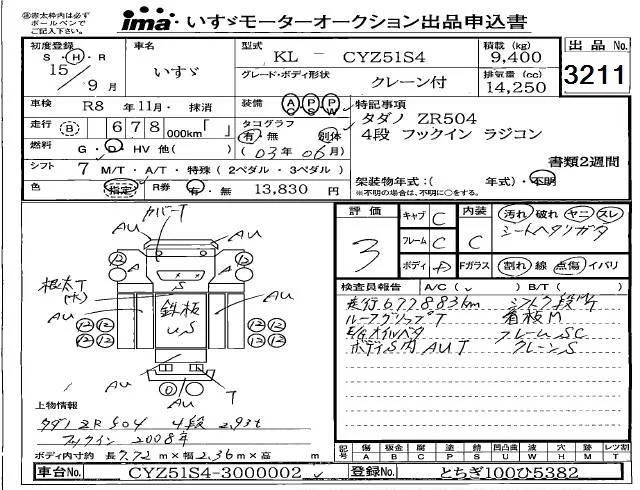 ※赤太枠内は必ずボールペンでご記入下さい。
ima いすゞモーターオークション出品申込書
初度登録 S・H・R 15年 9月
車名 いすゞ
型式 KL - CYZ51S4
積載(kg) 9,400
出品No. 3211
グレード・ボディ形状 クレーン付
排気量(cc) 14,250
車検 R8年11月・抹消
装備 AC PS PW
特記事項
タダノ ZR504
4段 フックイン ラジコン
走行 8 678 000km「 」
タコグラフ 有・無 別体
(03年06月)
燃料 G・D・HV 他( )
書類2週間
シフト 7 M/T・A/T・特殊(2ペダル・3ペダル)
架装物年式:( 年式)・不明
※不明の場合は、不明に○をする。
色 指定 R券 有・無 13,830 円
評価 3
キャブ C
フレーム C
ボディ
内装 C
Fガラス
汚れ 破れ ヤニ スレ
シートヘタリガタ
割れ 線 点傷 イバリ
カバーT
AU AU
A A
S
根太T
(木)
AU AU
鉄板
US
AU
AU
T
検査員報告 A/C( ) B/T( )
走行677883km シフト7段M/T
ルーフグリップT 看板M
E/Gオイルベタ フレームSC
ボディS内AUT クレーンS
上物情報
タダノ ZR504 4段 2.93t
フックイン 2008年
ボディ内寸約 長7.72m×幅2.36m×高 m
記号 傷A 板金B 腐C 塗P 錆S 凹凸曲U 波W 穴H 跡M レツ割T
車台No. CYZ51S4-3000002
登録No. とちぎ100ひ5382